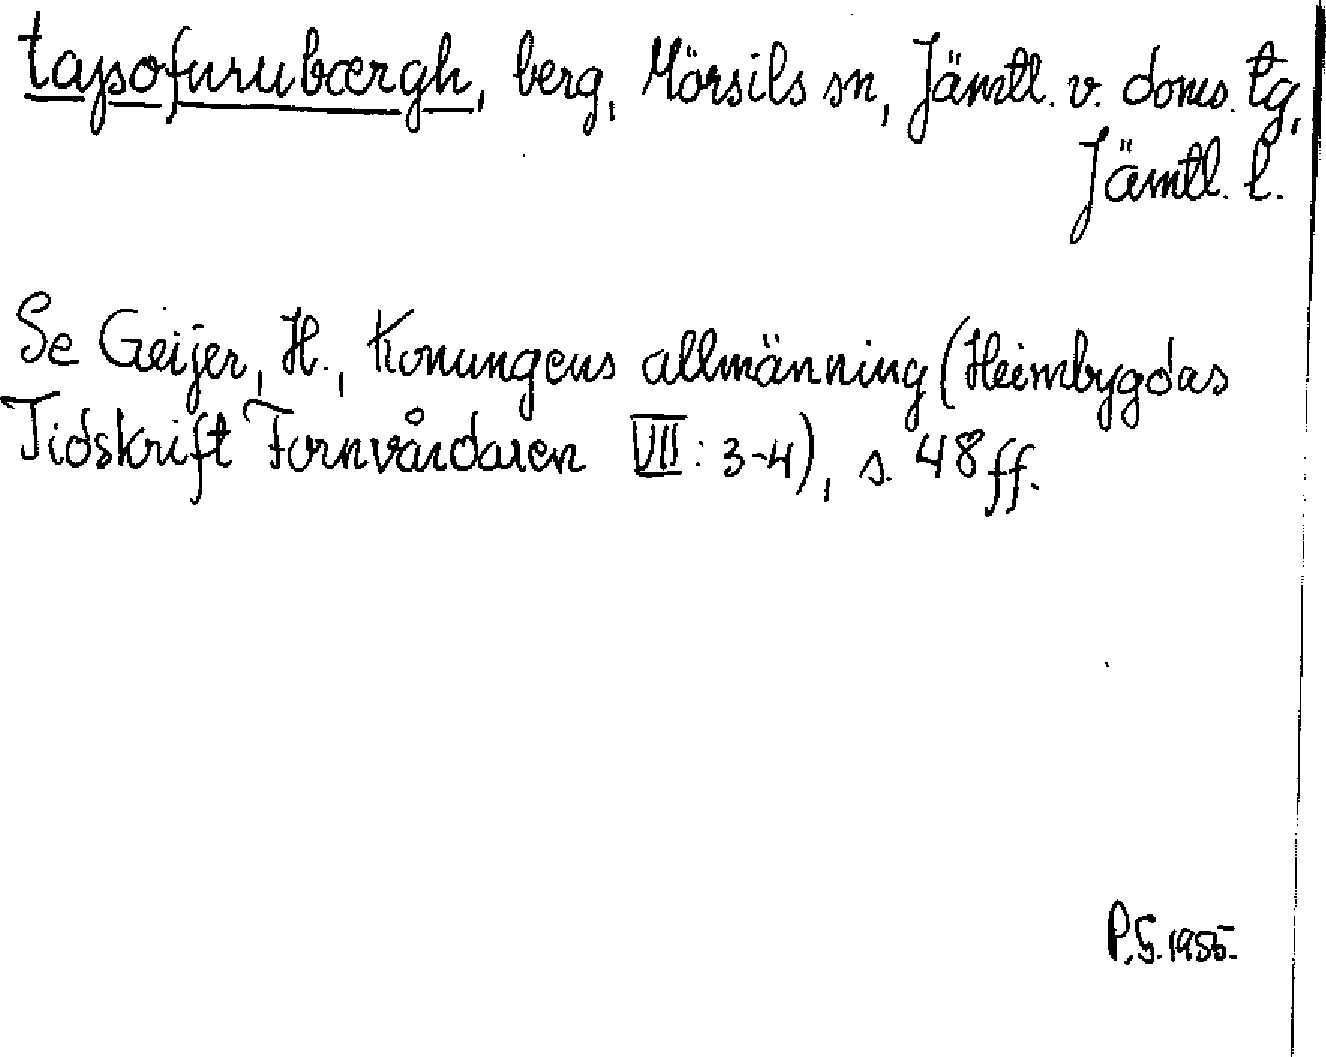 taysofurubærgh, berg, Mörsils sn, Jämtl. v. doms. tg,
Jämtl. l.
Se Geijer, H., Konungens allmänning (Heimbygdas
Tidskrift Fornvårdaren VII: 3-4), s. 48 ff.
P.G. 1955.